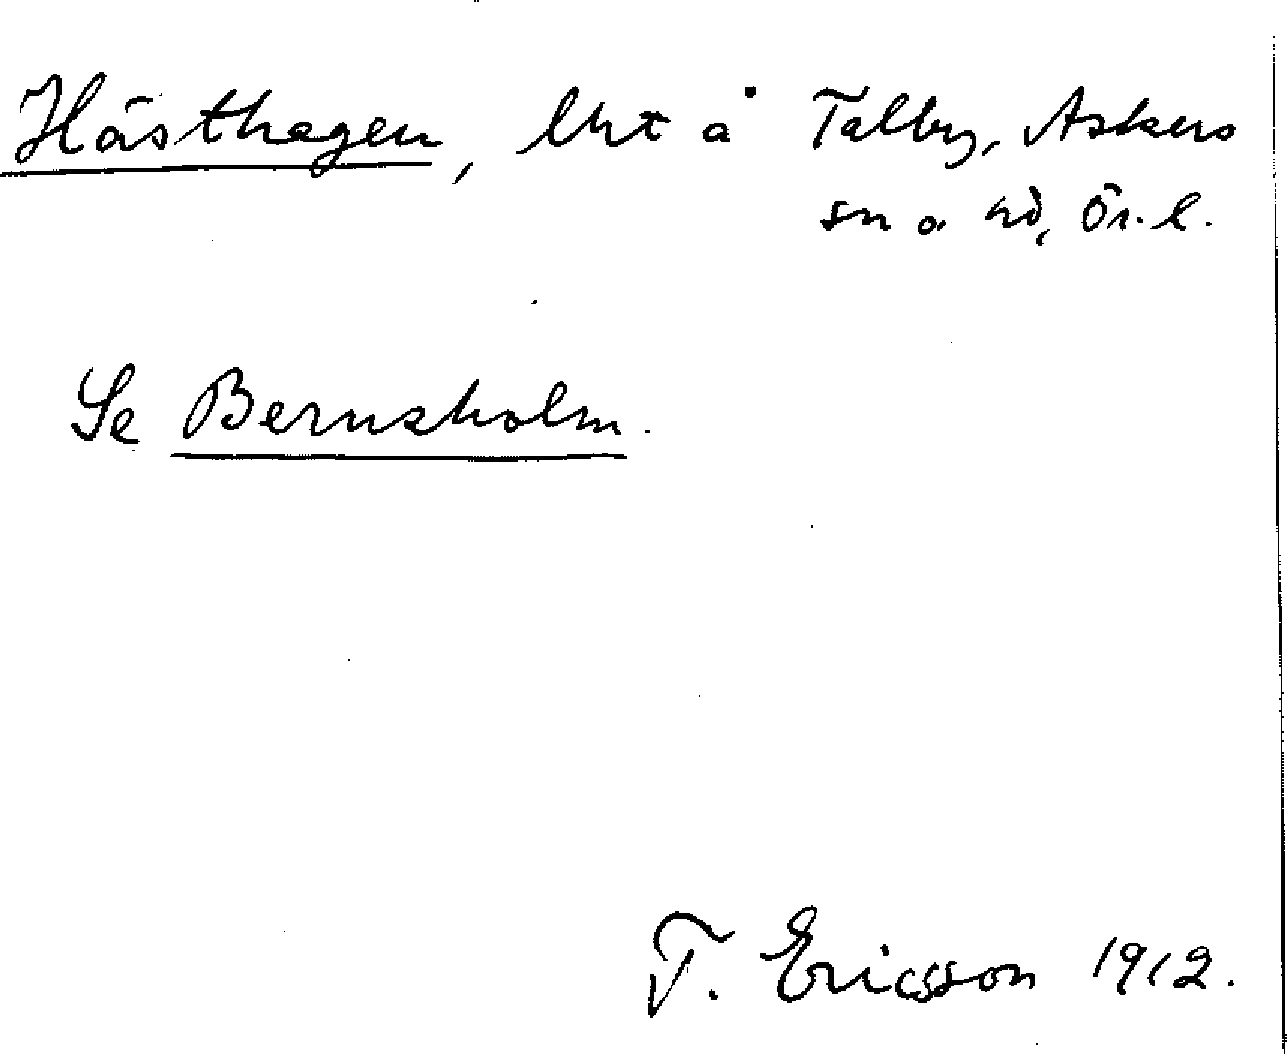 Hästhagen, lht å Talby, Askers
sn o. hd, Ör. l.
Se Bernsholm.
T. Ericsson 1912.